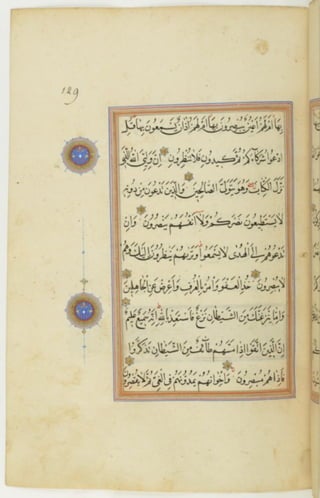 129
بِهَا أَمْ لَهُمْ أَعْيُنٌ يُبْصِرُونَ بِهَا أَمْ لَهُمْ آذَانٌ يَسْمَعُونَ بِهَا قُلِ
ادْعُوا شُرَكَاءَكُمْ ثُمَّ كِيدُونِ فَلَا تُنْظِرُونِ إِنَّ وَلِيِّيَ اللَّهُ الَّذِي
نَزَّلَ الْكِتَابَ وَهُوَ يَتَوَلَّى الصَّالِحِينَ وَالَّذِينَ تَدْعُونَ مِنْ دُونِهِ
لَا يَسْتَطِيعُونَ نَصْرَكُمْ وَلَا أَنْفُسَهُمْ يَنْصُرُونَ وَإِنْ
تَدْعُوهُمْ إِلَى الْهُدَى لَا يَسْمَعُوا وَتَرَاهُمْ يَنْظُرُونَ إِلَيْكَ وَهُمْ
لَا يُبْصِرُونَ خُذِ الْعَفْوَ وَأْمُرْ بِالْعُرْفِ وَأَعْرِضْ عَنِ الْجَاهِلِينَ
وَإِمَّا يَنْزَغَنَّكَ مِنَ الشَّيْطَانِ نَزْغٌ فَاسْتَعِذْ بِاللَّهِ إِنَّهُ سَمِيعٌ عَلِيمٌ
إِنَّ الَّذِينَ اتَّقَوْا إِذَا مَسَّهُمْ طَائِفٌ مِنَ الشَّيْطَانِ تَذَكَّرُوا
فَإِذَا هُمْ مُبْصِرُونَ وَإِخْوَانُهُمْ يَمُدُّونَهُمْ فِي الْغَيِّ ثُمَّ لَا يُقْصِرُونَ